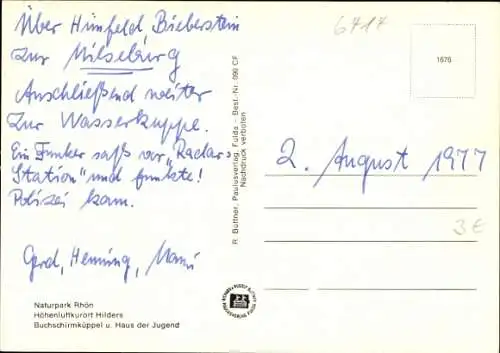 Über Hünfeld, Bieberstein
zur Milseburg
Anschließend weiter
zur Wasserkuppe.
Ein Funker saß vor „Radar-
Station“ und funkte!
Polizei kam.
Gerd, Henning,
Naturpark Rhön
Höhenluftkurort Hilders
Buchschirmküppel u. Haus der Jugend
R. Büttner, Paulusverlag, Fulda - Best.-Nr. 890 CF
Nachdruck verboten
6414
1676
2. August 1977
3€